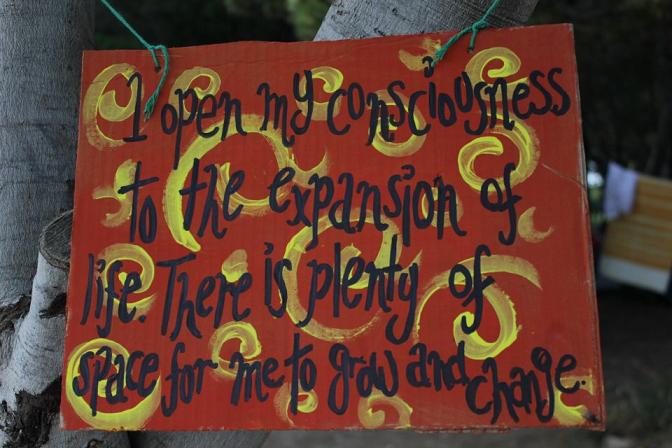 I open my consciousness
to the expansion of
life. There is plenty of
space for me to grow and change.